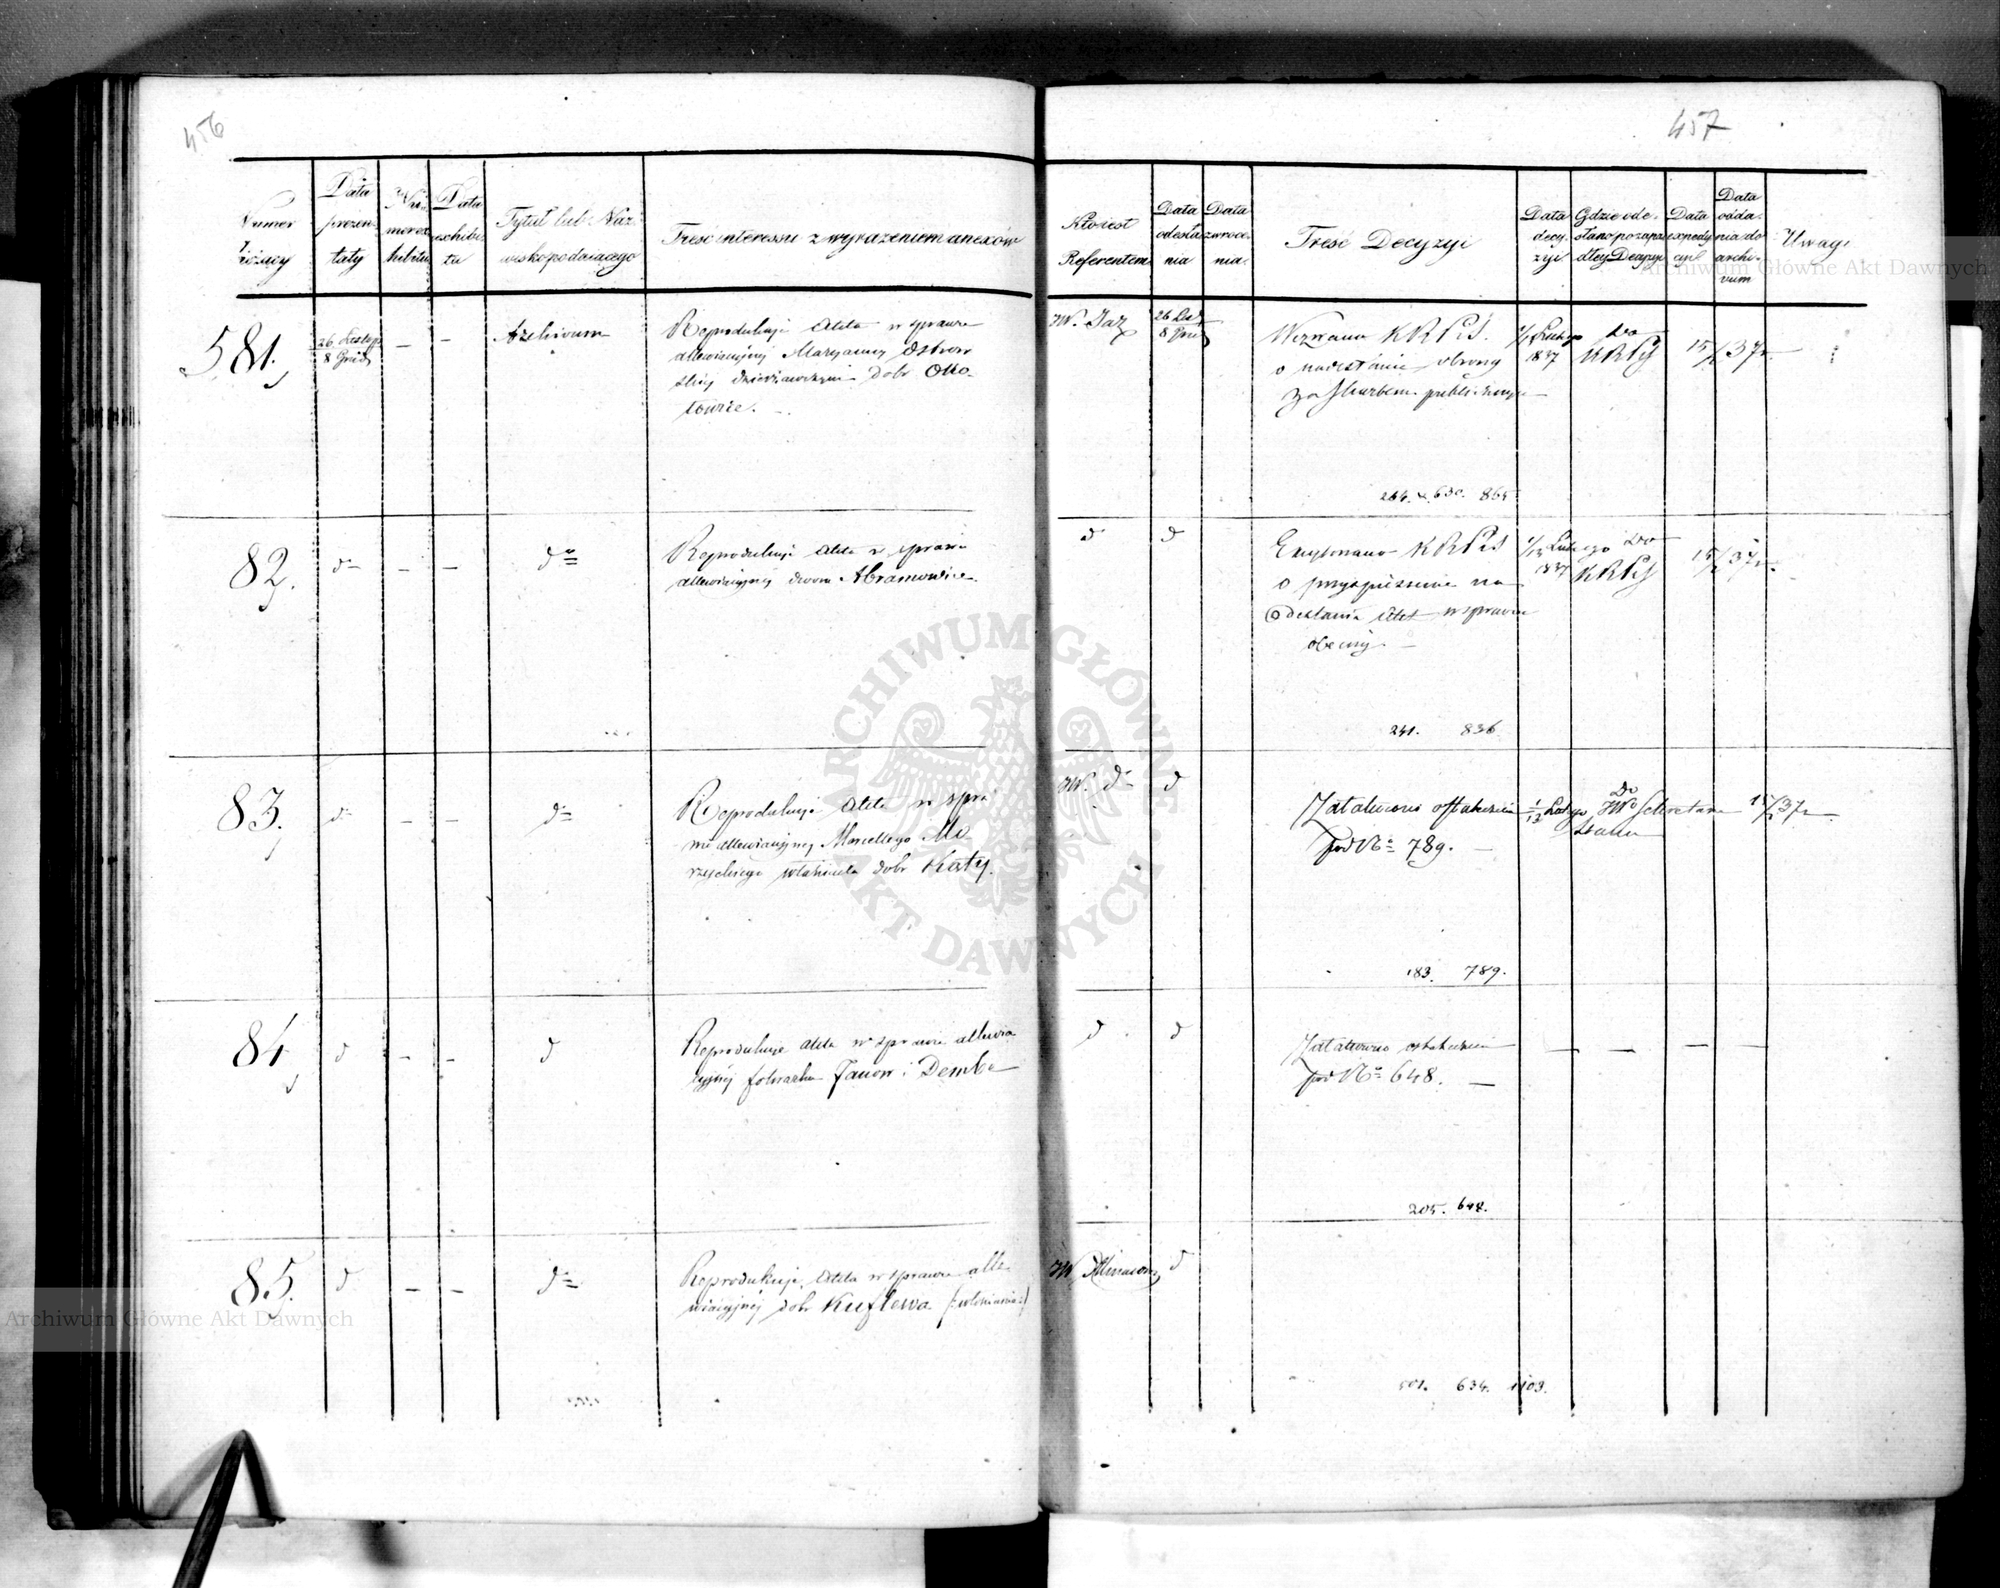 456
Numer bieżący
Data prezentaty
Numer exhibitu
Data exhibitu
Tytuł lub Nazwisko podającego
Treść interessu z wyrażeniem anexów
581.
26 Listop
8 Grud
—
—
Archivum
Reprodukuje Akta w sprawie
allewiacyjnej Maryanny Ostrow
skiej dzierżawczyni dobr Oko-
towice.
82.
d
—
—
do
Reprodukuje Akta w sprawie
allewiacyjnej dworu Abramowice.
83.
d
—
—
do
Reprodukuje Akta w spra
wie allewiacyjnej Marcellego Mo
rzyckiego właściciela dobr
84
d
—
—
d
Reprodukuje akta w sprawie allewia
cyjnej folwarku Janow i Dembe
85.
d
—
—
do
Reprodukuje Akta w sprawie alle-
wiacyjnej dobr Kuflewa
457
Kto jest Referentem
Data odesłania
Data zwrocenia
Treść Decyzyi
Data decyzyi
Gdzie odesłano po zapadłej Decyzyi
Data expedycyi
Data oddania do archivum
Uwagi
JW.
26 List
8 Grud
Wezwano KRPiS
o nadesłanie obrony
za skarbem publicznym —
Lutego
1837
Do
KRPiS
15/2 37 r
264. 630. 865
d
d
KRPiS
o przyspieszenie na
desłania Akt w sprawie
obecnej —
1/13 Lutego
1837
Do
KRPiS
15/2 37 r
241. 836
JW. do
d
Załatwiono ostatecznie
pod No 789. —
1/13 Lutego
Do
JWo Sekretarza
Stanu
15/2 37 r
183. 789.
d
d
Załatwiono ostatecznie
pod No 648. —
—
—
—
—
205. 648.
JW
d
501. 634. 1103.
Archiwum Główne Akt Dawnych
Archiwum Główne Akt Dawnych
ARCHIWUM GŁÓWNE AKT DAWNYCH